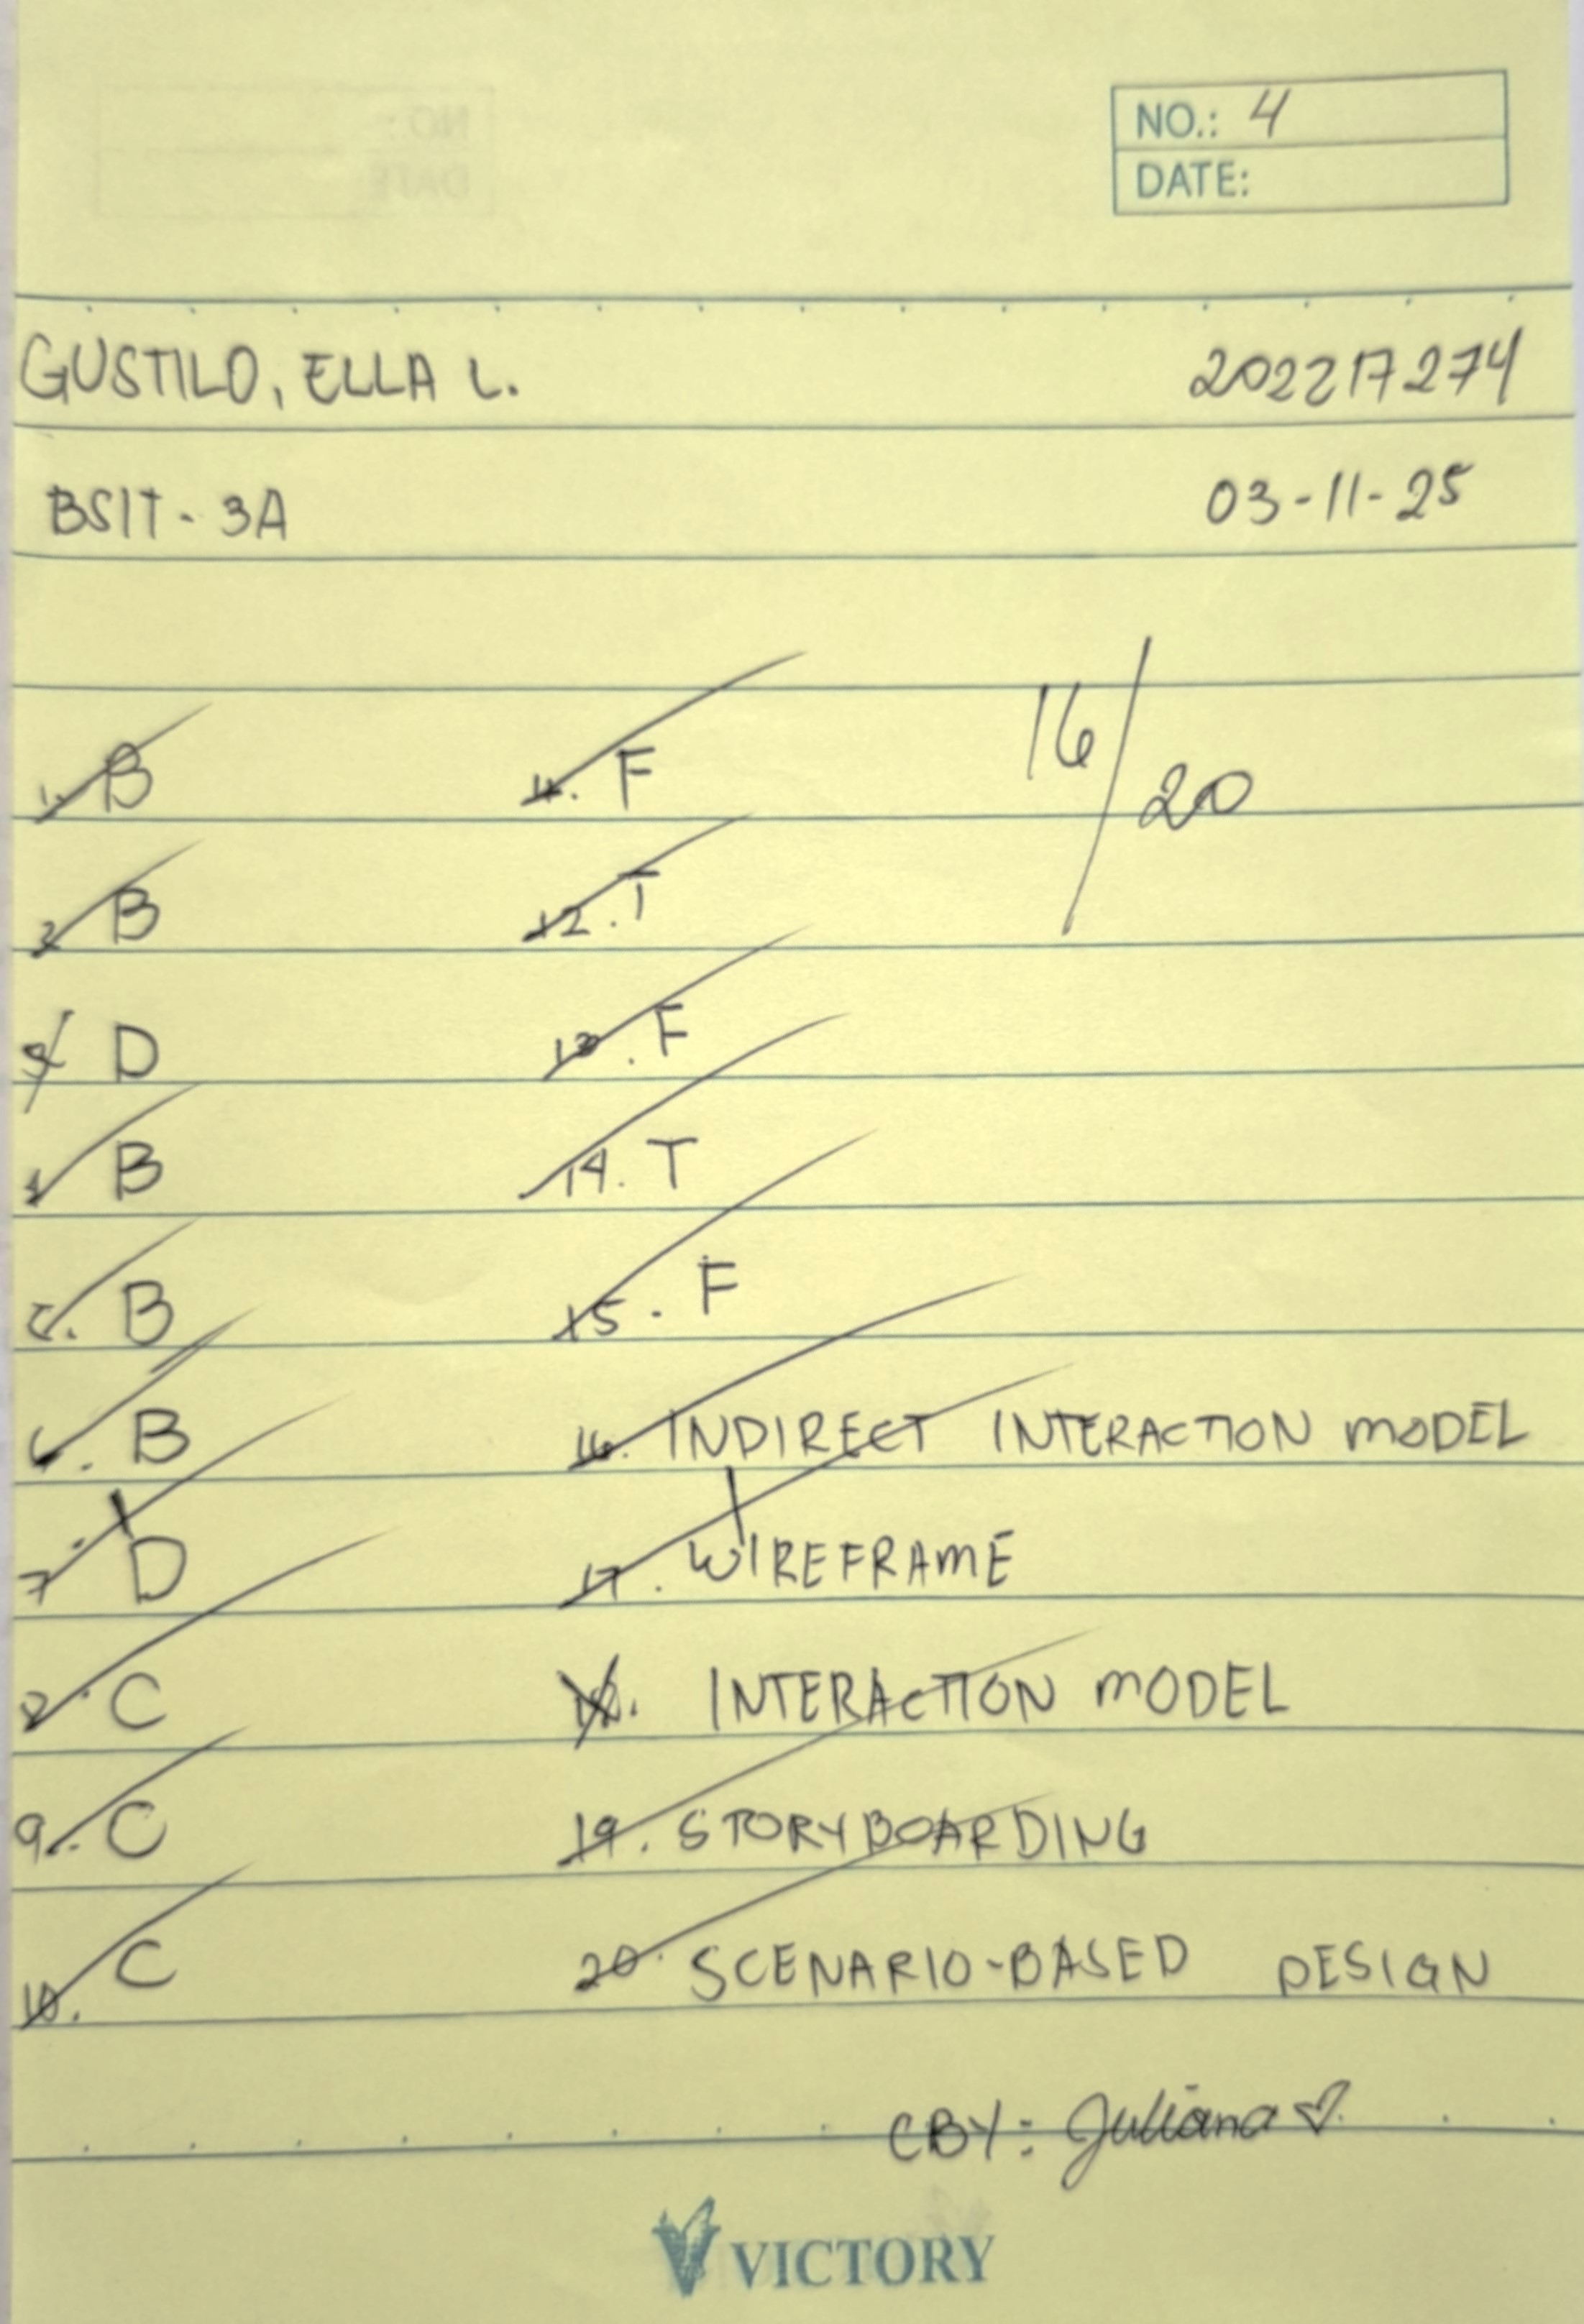 NO.: 4
DATE:
GUSTILO, ELLA L. 202217274
BSIT - 3A 03-11-25
16/20
1. B
2. B
3. D
4. B
5. B
6. B
7. D
8. C
9. C
10. C
11. F
12. T
13. F
14. T
15. F
16. INDIRECT INTERACTION MODEL
17. WIREFRAME
18. INTERACTION MODEL
19. STORYBOARDING
20. SCENARIO-BASED DESIGN
CBY: Juliana
VICTORY